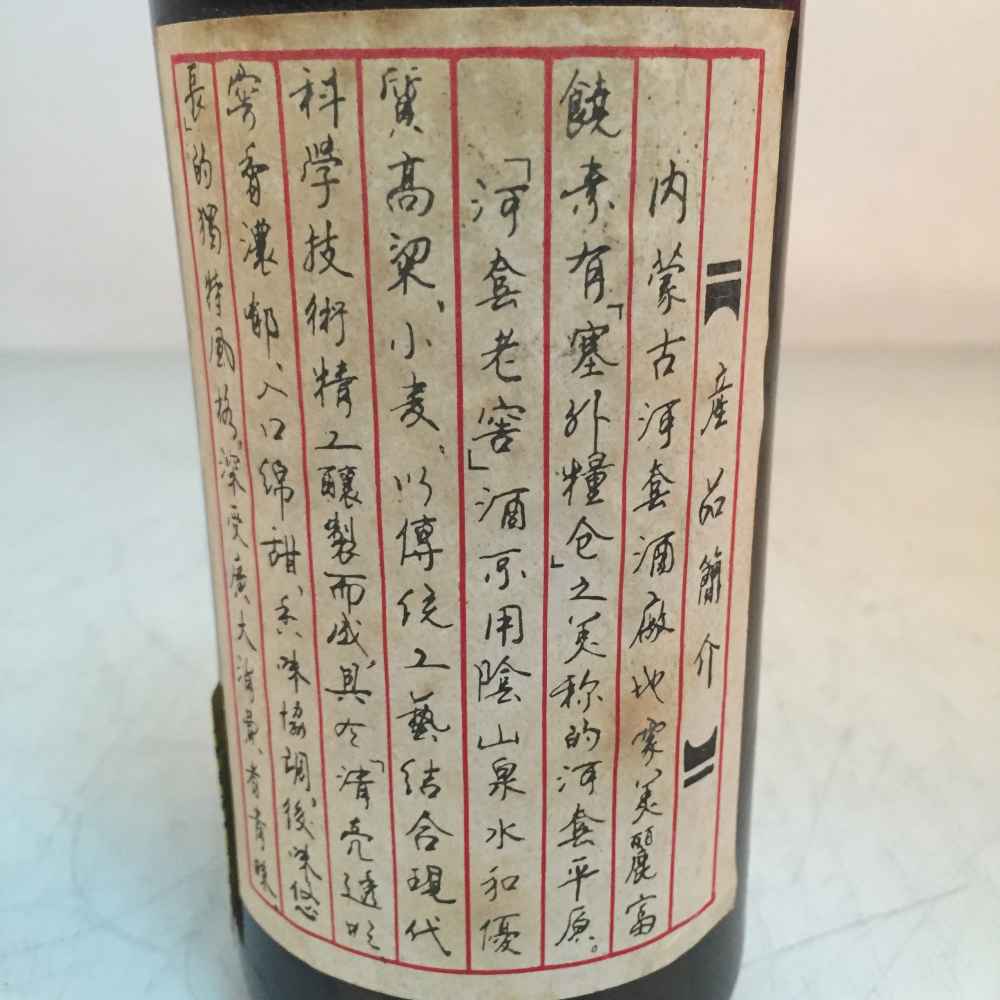 産品簡介
内蒙古河套酒廠地處美麗富
饒素有「塞外糧仓」之美称的河套平原。
「河套老窖」酒系用陰山泉水和優
質高粱、小麦、以傳统工藝结合現代
科學技術精工釀製而成,具「清亮透明、
窖香濃郁、入口綿甜、香味協調、後味悠
長」的獨特風格,深受廣大消費者青睞